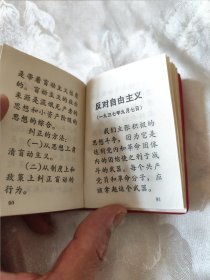 是带着盲动主义性
者。盲动主义的社会
来源是流氓无产者的
思想和小资产阶级的
思想的综合。
纠正的方法：
（一）从思想上肃
清盲动主义。
（二）从制度上和
政策上纠正盲动的
行为。
90
反对自由主义
（一九三七年九月七日）
我们主张积极的
思想斗争，因为它是
达到党内和革命团体
内的团结使之利于战
斗的武器。每个共产
党员和革命分子，应
该拿起这个武器。
91